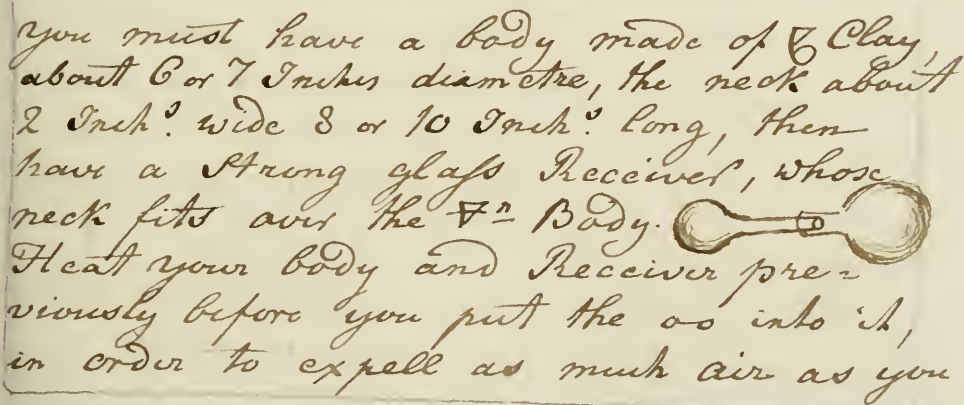 you must have a body made of 🜃 Clay,
about 6 or 7 Inches diametre, the neck about
2 Inchˢ. wide 8 or 10 Inchˢ. long, then
have a Strong glaſs Receiver, whose
neck fits over the 🜃ⁿ Body.
Heat your body and Receiver pre=
viously before you put the oo into it,
in order to expell as much air as you